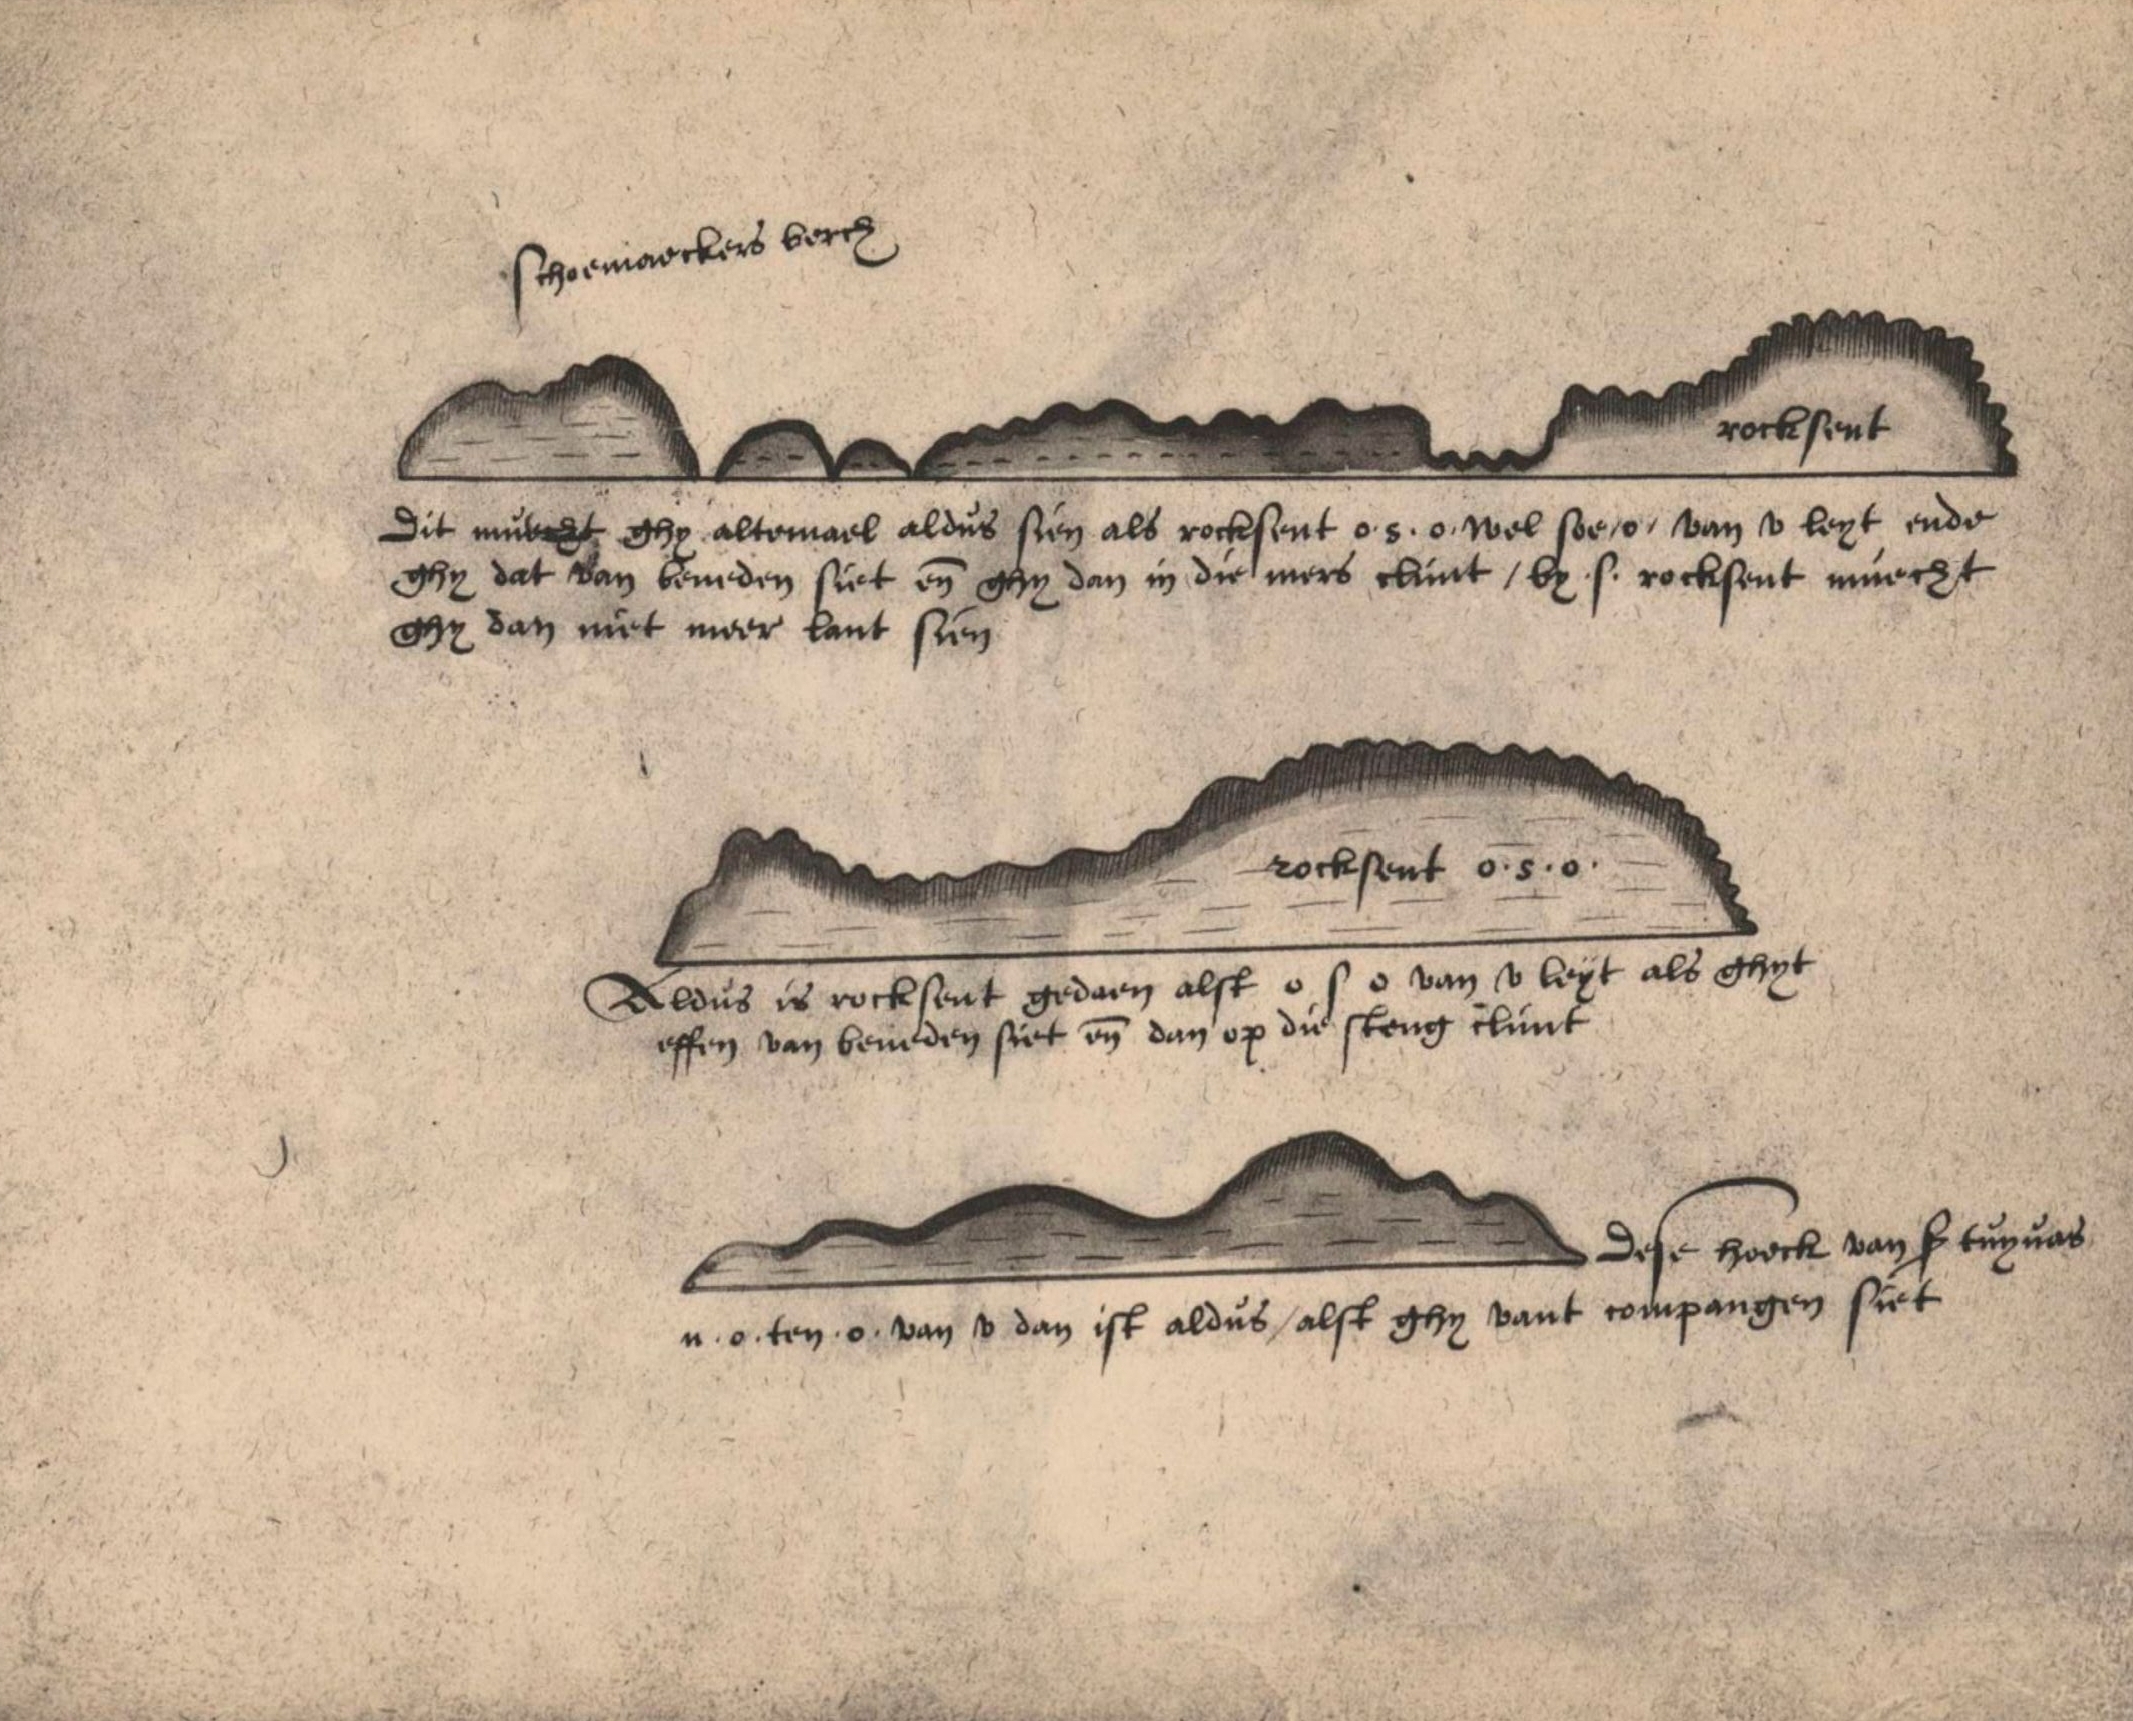 schoemaeckers berch
rocksent
Dit muecht ghy altemael aldus sien als rocksent o.s.o. wel soe/o/ van v leyt ende
ghy dat van beneden siet en̄ ghy dan in die mers clint / by .s. rocksent muecht
ghy dan niet meer lant sien
rocksent o.s.o.
Aldus is rocksent gedaen alst o s o van v leyt als ghyt
effen van beneden siet en̄ dan op die steng clint
Dese hoeck van tuyuas
n.o.ten.o. van v dan ist aldus/alst ghy vant compangen siet